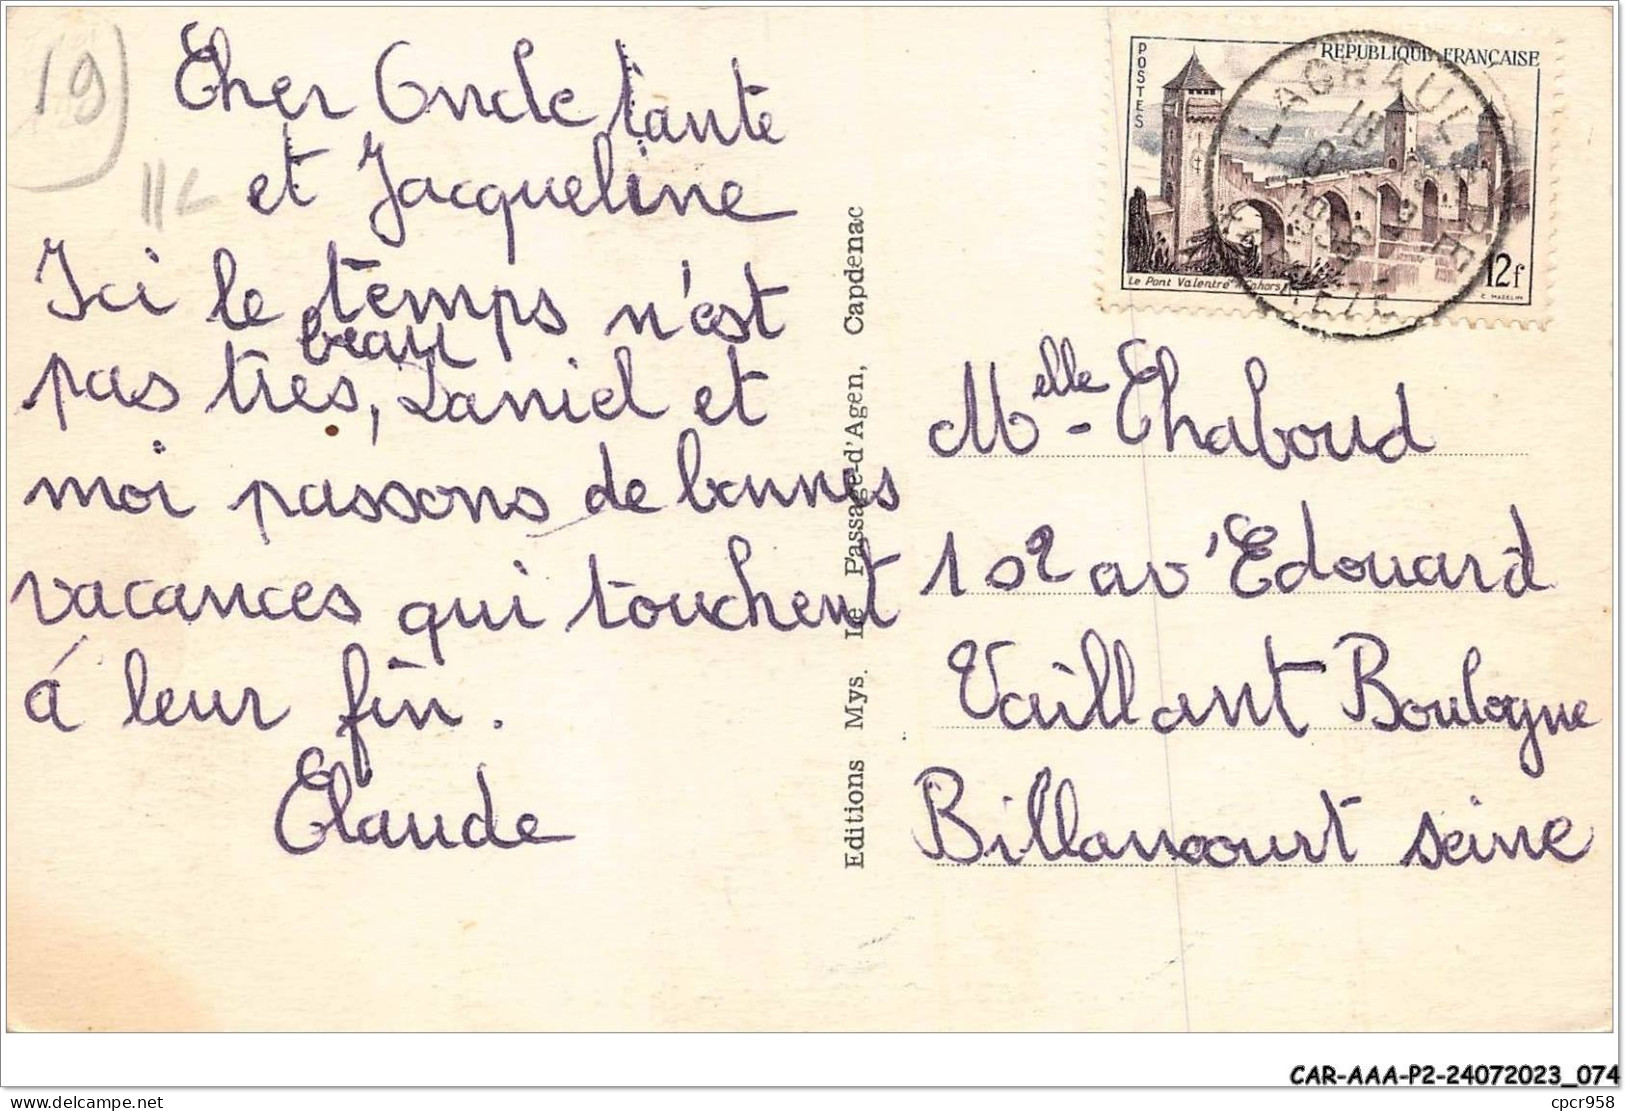 19
Cher Oncle tante
et Jacqueline
Ici le temps n'est
pas très, beau Daniel et
moi passons de bonnes
vacances qui touchent
á leur fin.
Claude
Editions Mys. Le Passage-d'Agen, Capdenac
POSTES
REPUBLIQUE FRANÇAISE
Le Pont Valentré - Cahors
12f
C. MAZELIN
Melle - Chaboud
102 av Edouard
Vaillant Boulogne
Billancourt seine
CAR-AAA-P2-24072023_074
cpcr958